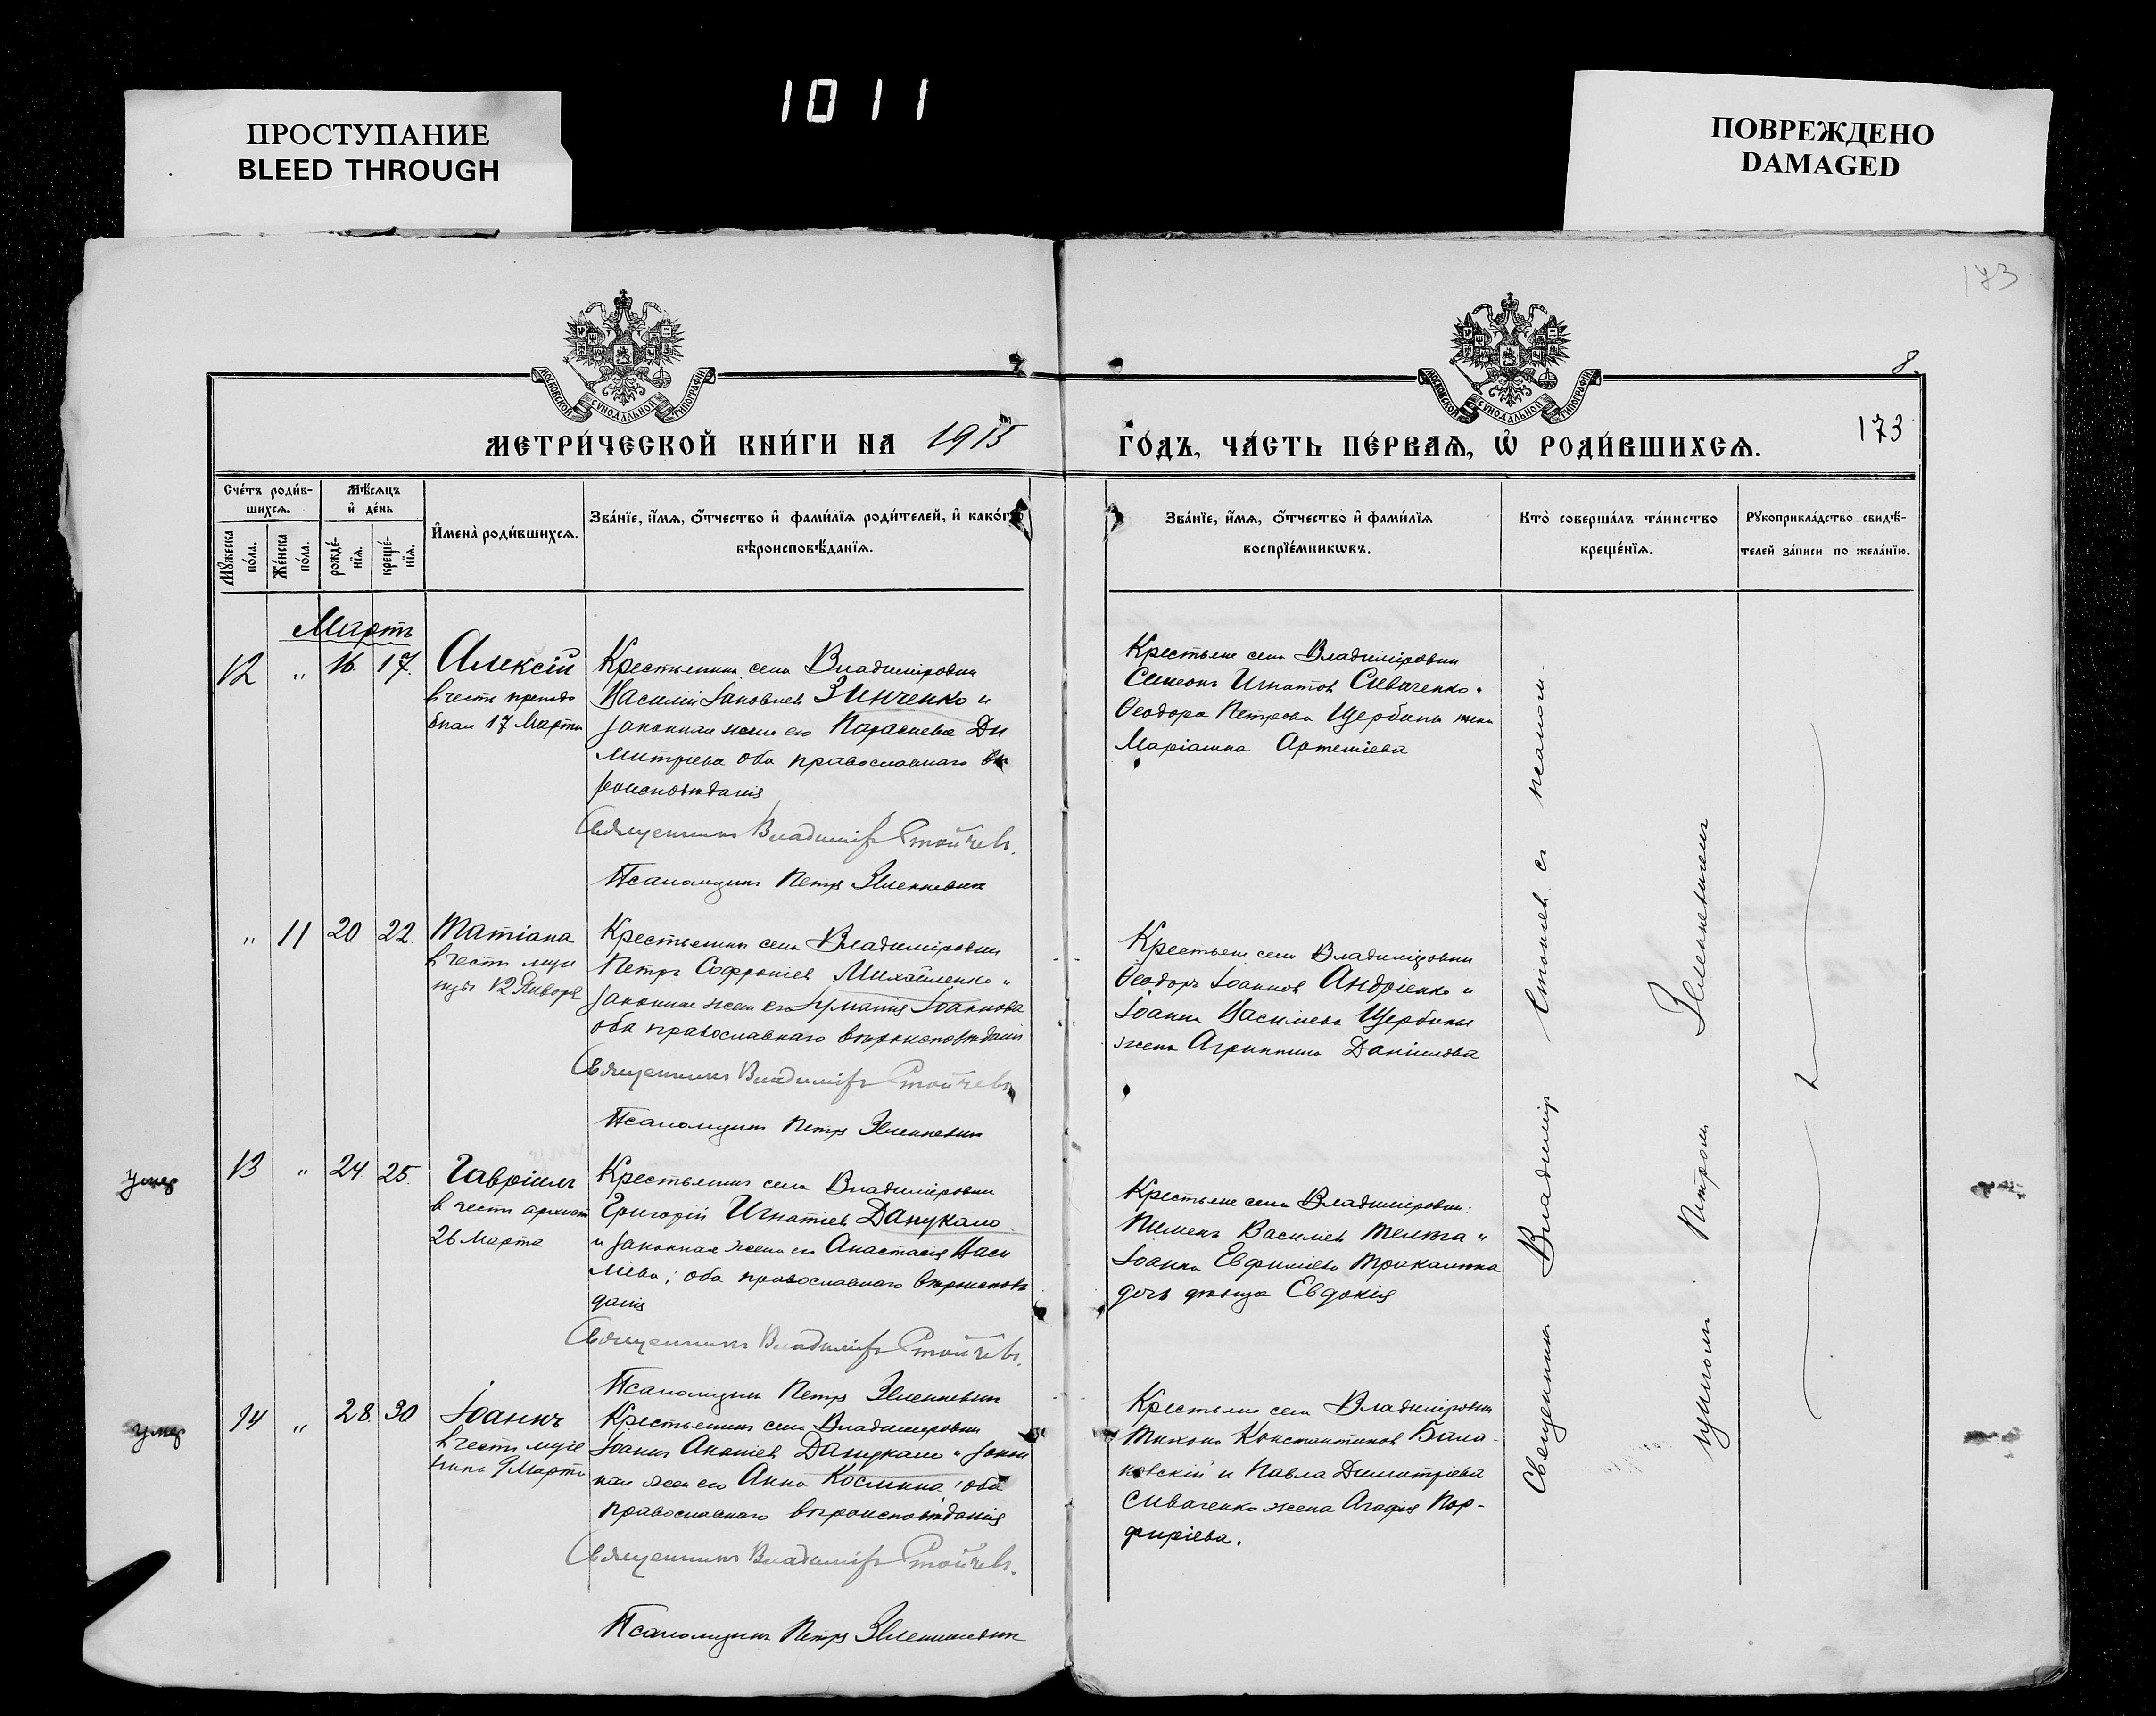 1011
ПРОСТУПАНИЕ
BLEED THROUGH
ПОВРЕЖДЕНО
DAMAGED
173
МОСКОВСКОЙ СУНОДАЛЬНОЙ ТИПОГРАФІИ
МОСКОВСКОЙ СУНОДАЛЬНОЙ ТИПОГРАФІИ
8
МЕТРИ́ЧЕСКОЙ КНИ́ГИ НА 1915
ГО́ДЪ, ЧА́СТЬ ПЕ́РВАѦ, Ѡ҆ РОДИ́ВШИХСѦ.
173
Сче́тъ роди́в-
шихсѧ.
Мꙋ́жеска по́ла.
Же́нска по́ла.
Мѣ́сѧцъ
и҆ де́нь
рожде́-
нїѧ.
креще́-
нїѧ.
И҆мена̀ роди́вшихсѧ.
Зва́нїе, и҆́мѧ, ѻ҆́тчество и҆ фами́лїѧ роди́телей, и҆ како́гѡ
вѣроисповѣ́данїѧ.
Зва́нїе, и҆́мѧ, ѻ҆́тчество и҆ фами́лїѧ
воспрїе́мникѡвъ.
Кто̀ соверша́лъ та́инство
креще́нїѧ.
Рꙋкоприкла́дство свидѣ́-
телей за́писи по жела́нїю.
Мартъ
12 " 16 17. Алексій
в честь преподо
бнаго 17 Марта
Крестьянинъ села Владиміровки
Василій Іаковлев Зинченко и
законная жена его Параскева Ди
митріева оба православнаго вѣ
роисповѣданія
Священникъ Владиміръ Стойчевъ.
Псаломщикъ Петръ Зеленкевичъ
Крестьяне села Владиміровки
Симеонъ Игнатов Сиваченко и
Ѳеодора Петрова Щербины жена
Маріамна Артеміева
" 11 20 22. Татіана
в честь муче
ницы 12 Января
Крестьянинъ села Владиміровки
Петръ Софроніев Михайленко и
законная жена его Іуманія Іоаннова
оба православнаго вѣроисповѣданія
Священникъ Владиміръ Стойчевъ
Псаломщикъ Петръ Зеленкевичъ
Крестьяне села Владиміровки
Ѳеодоръ Іоаннов Андріенко и
Іоанна Василіева Щербины
жена Агриппина Даніилова
умер
13 " 24 25. Гавріилъ
в честь архист
26 Марта
Крестьянинъ села Владиміровки
Григорій Игнатіев Данукало
и законная жена его Анастасія Васи
ліева; оба православнаго вѣроисповѣ
данія
Священникъ Владиміръ Стойчевъ.
Псаломщикъ Петръ Зеленкевичъ
Крестьяне села Владиміровки:
Пименъ Василіев Телюга и
Іоанна Евфиміева Трикашка
дочь дѣвица Евдокія
умер
14 " 28 30 Іоаннъ
в честь муче
ника 9 Марта
Крестьянинъ села Владиміровки
Іоаннъ Аканіев Данукало и закон
ная жена его Анна Космина; оба
православнаго вѣроисповѣданія
Священникъ Владиміръ Стойчевъ.
Псаломщикъ Петръ Зеленкевичъ
Крестьяне села Владиміровки
Тихонъ Константинов Бала-
новскій и Павла Димитріева
Сиваченко жена Агафія Пор-
фиріева.
Священникъ Владиміръ Стойчев съ псалом-
щикомъ Петромъ Зеленкевичемъ